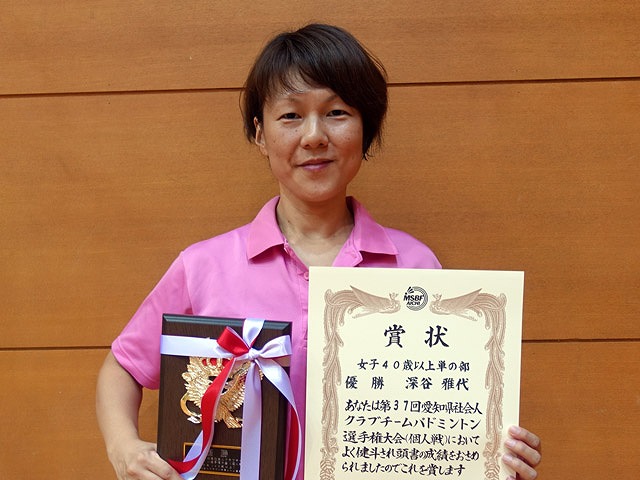 MSBF
AICHI
賞状
女子40歳以上単の部
優勝 深谷 雅代
あなたは第37回愛知県社会人
クラブチームバドミントン
選手権大会(個人戦)において
よく健斗され頭書の成績をおさめ
られましたのでこれを賞します